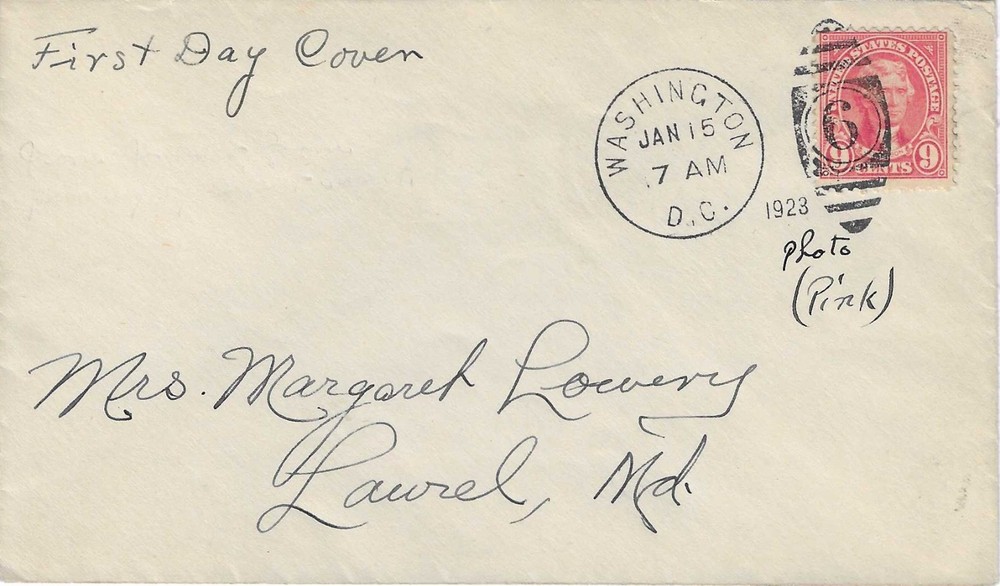 First Day Cover
WASHINGTON
JAN 15
7 AM
D.C.
1923
6
UNITED STATES POSTAGE
9 CENTS 9
Photo
(Pink)
Mrs. Margaret Lowery
Laurel, Md.